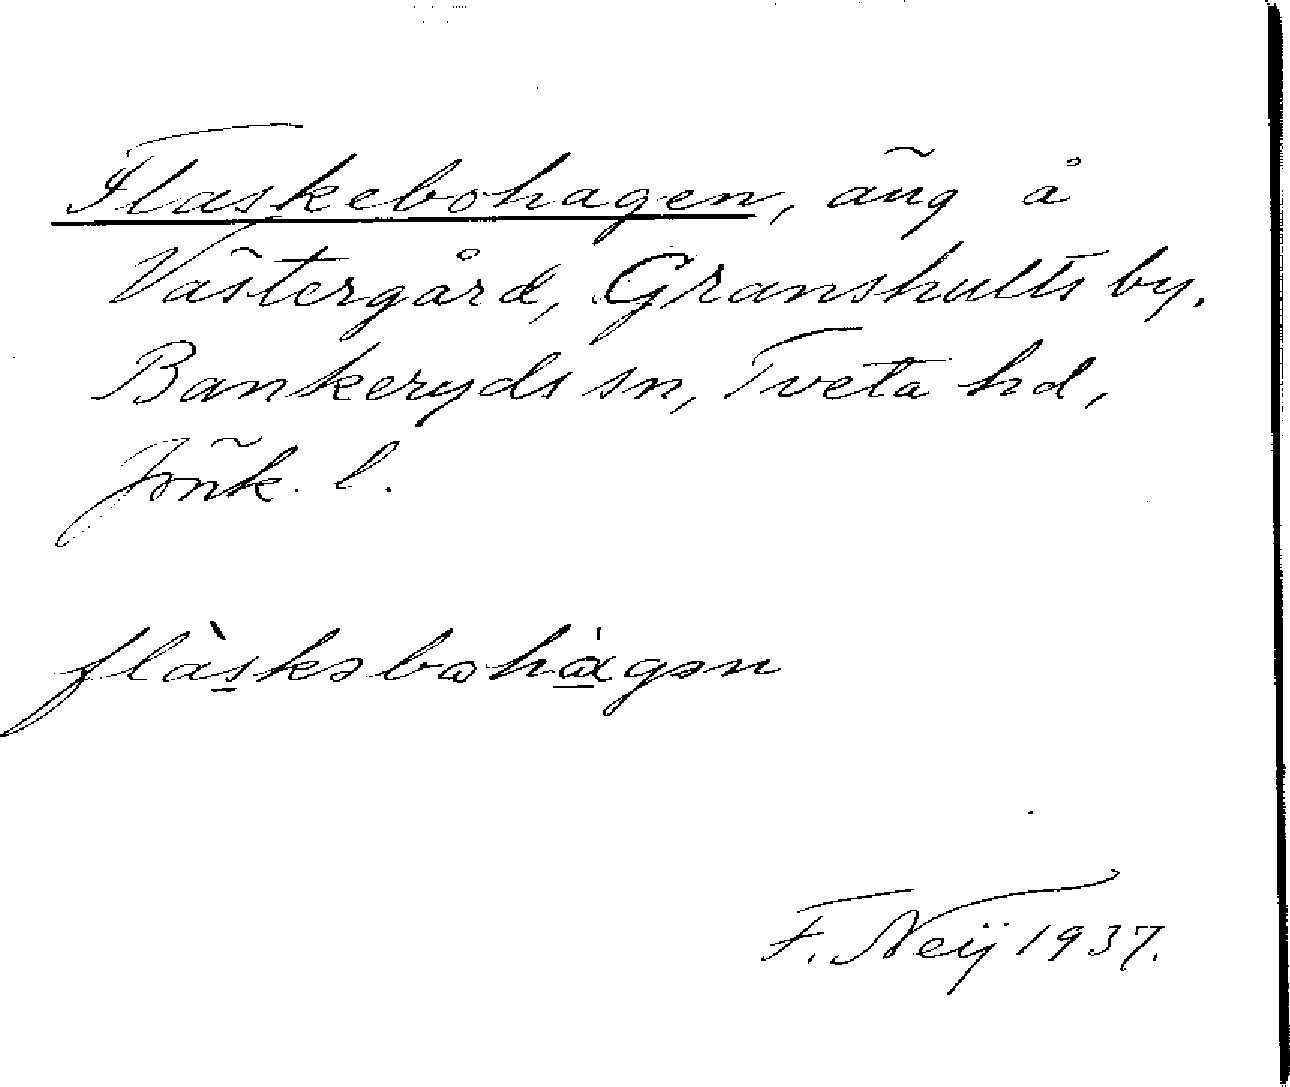 Flaskebohagen, äng å
Västergård, Granshults by.
Bankeryds sn, Tveta hd,
Jönk. l.
flàskəbωhαgən
F. Neij 1937.